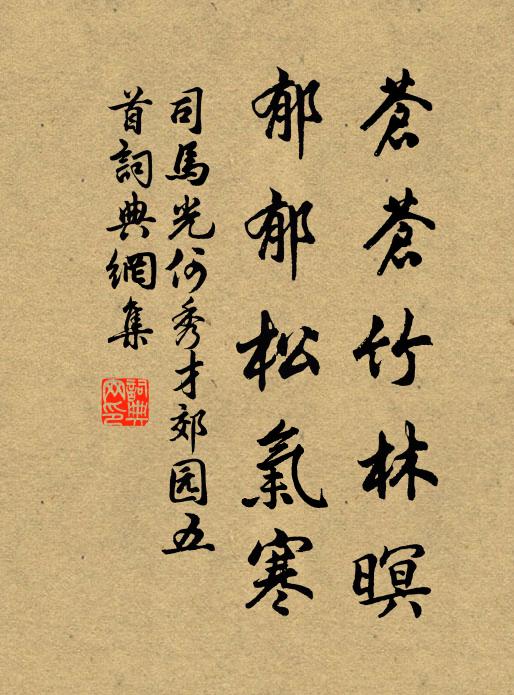 蒼蒼竹林暝
郁郁松氣寒
司馬光何秀才郊园五
首詞典網集
詞典
网印